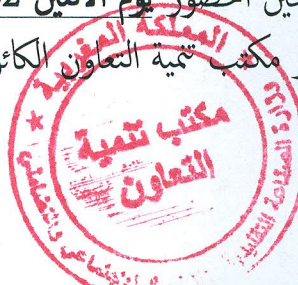 الحضور يوم الاثنين
مكتب تنمية التعاون الكائن
المملكة المغربية
مكتب تنمية
التعاون
وزارة الصناعة التقليدية
الاجتماعي والتضامني